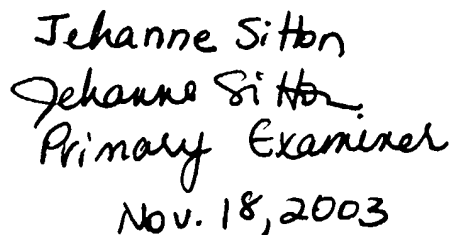 Jehanne Sitton
Jehanne Sitton
Primary Examiner
Nov. 18, 2003